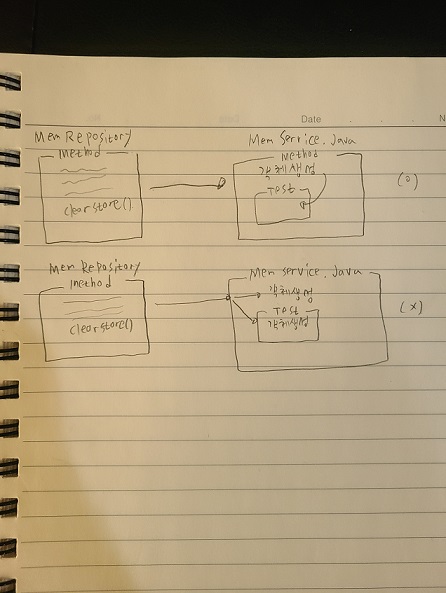 Date
Mem Repository
method
clearstore()
Mem Service.Java
Method
객체생성
Test
(O)
Mem Repository
method
clearstore()
Mem service.Java
객체생성
Test
객체생성
(X)